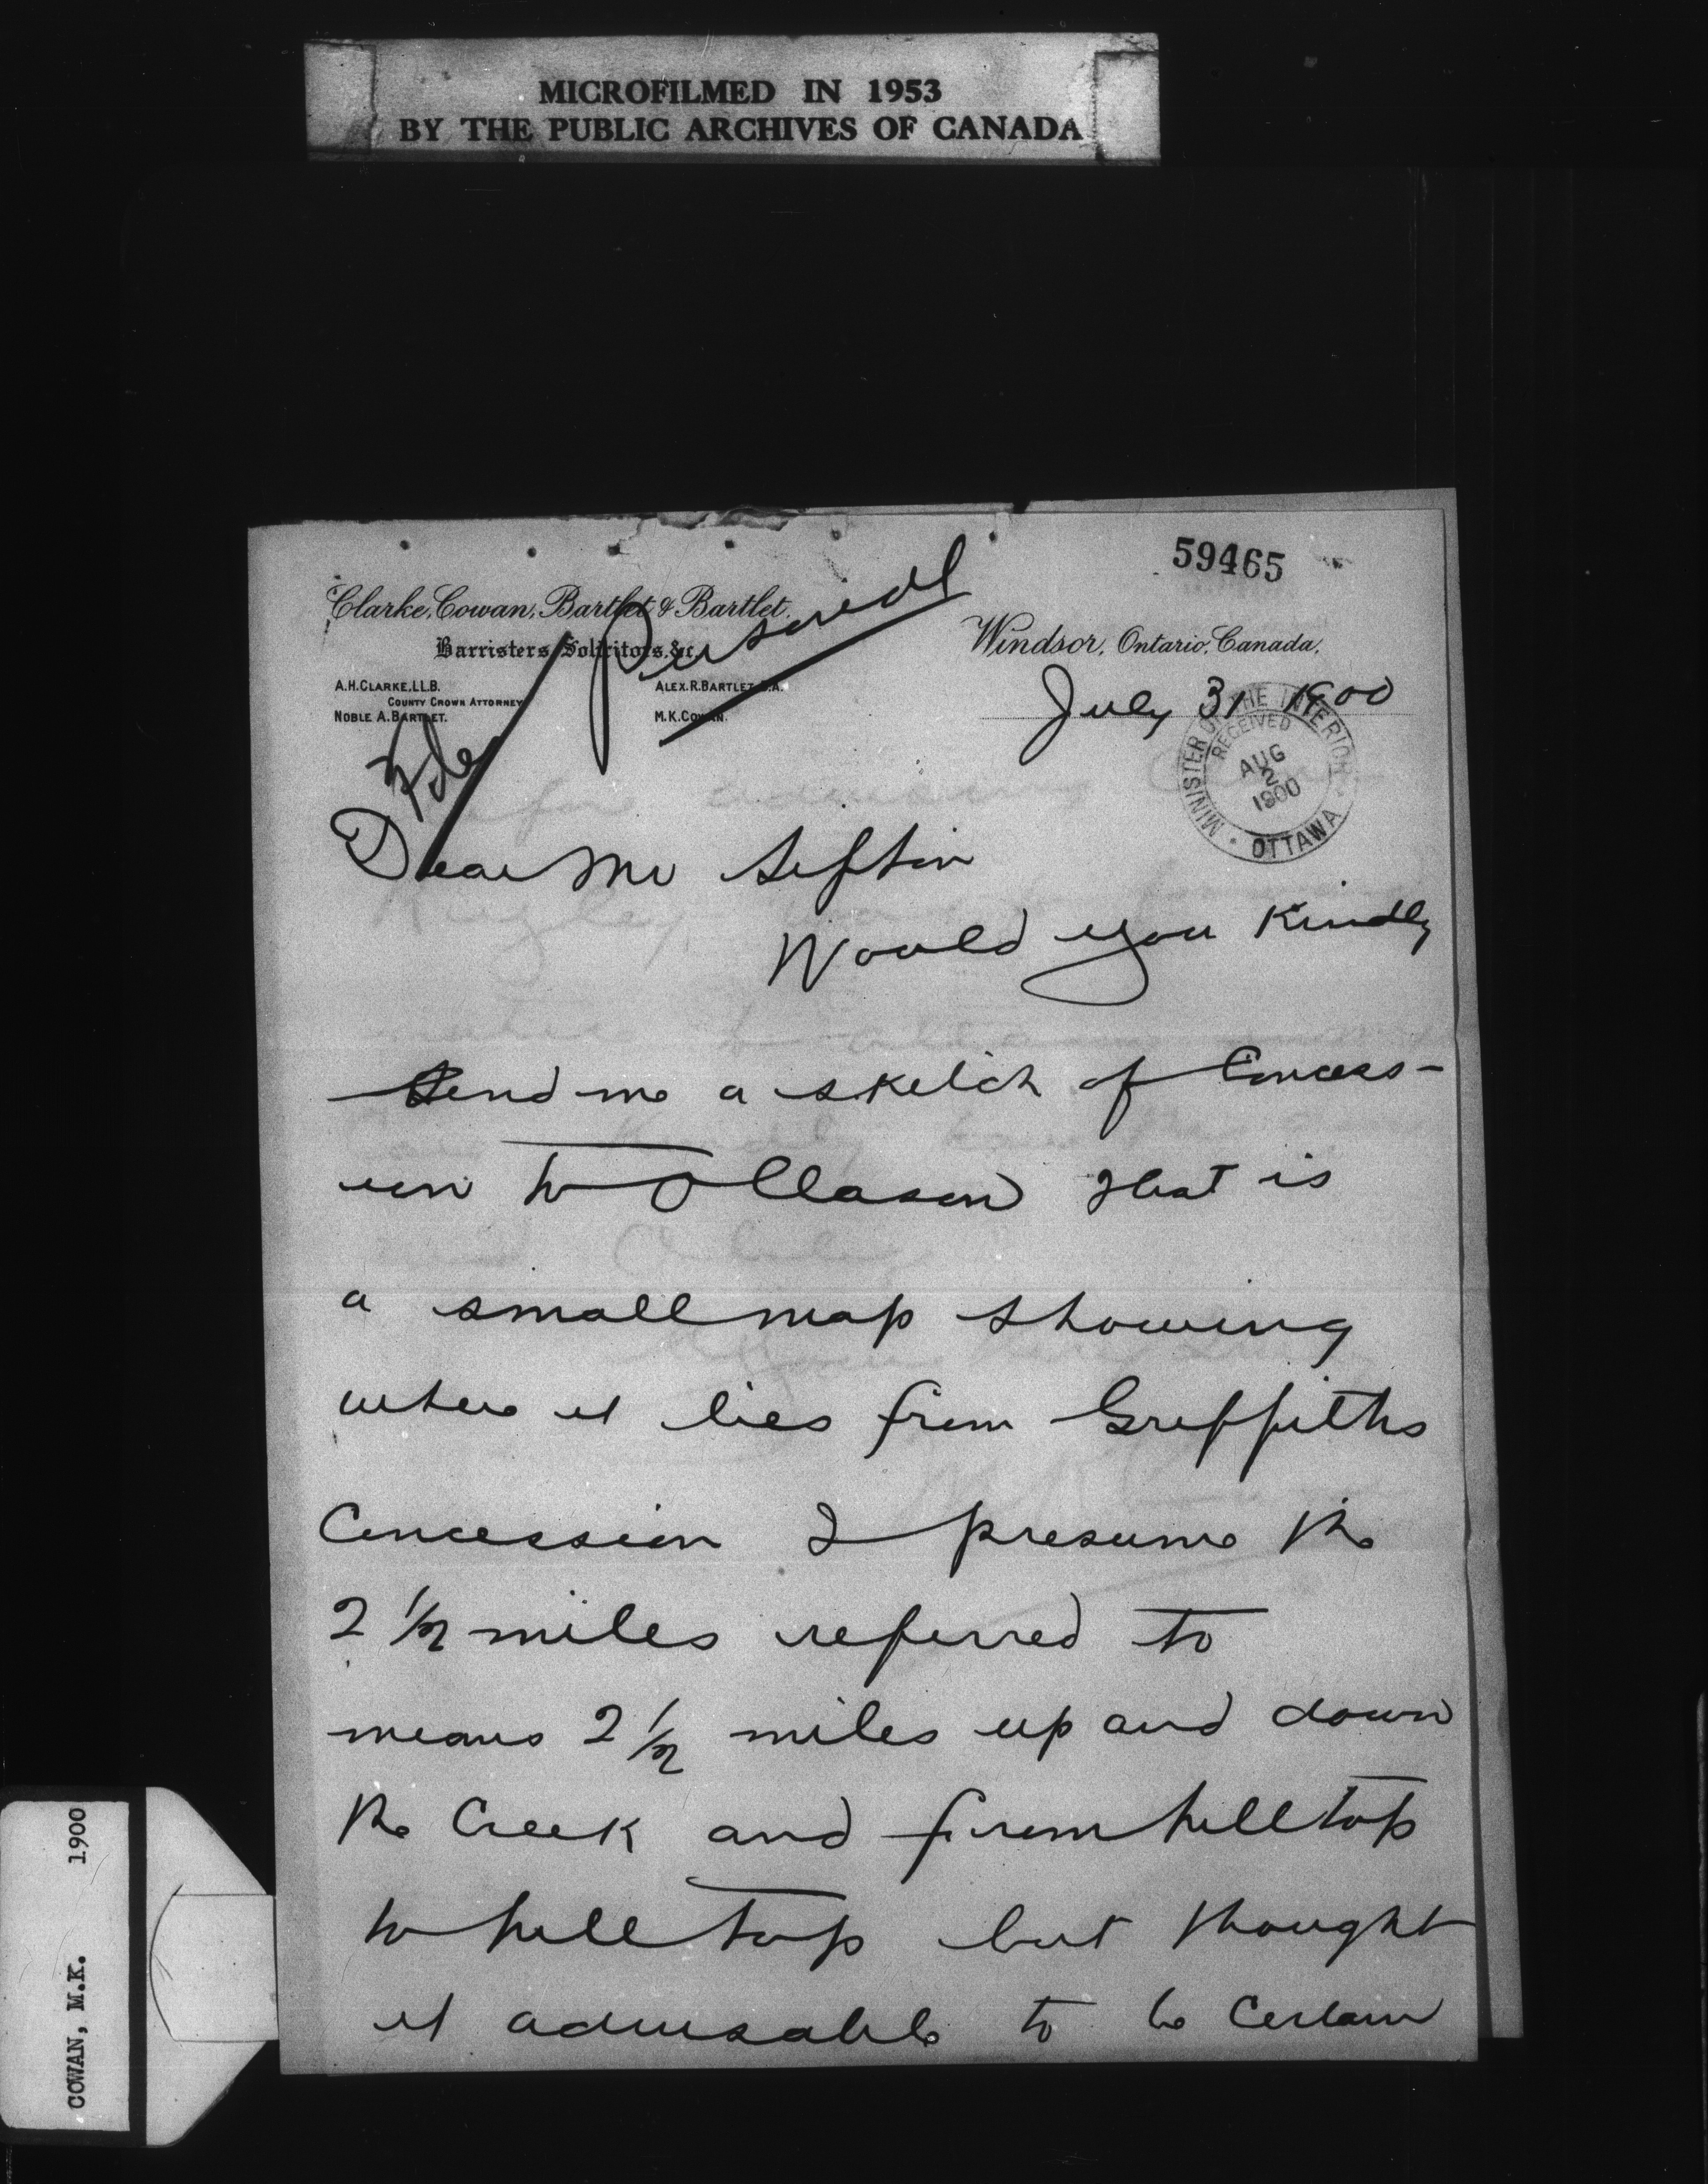 MICROFILMED IN 1953
BY THE PUBLIC ARCHIVES OF CANADA
59465
Clarke, Cowan, Bartlet & Bartlet.
Barristers, Solicitors, &c.
Windsor, Ontario, Canada,
A.H. CLARKE, LL.B.
COUNTY CROWN ATTORNEY
NOBLE A. BARTLET.
ALEX. R. BARTLET, B.A.
M.K. COWAN.
Personal
File
July 31 1900
MINISTER OF THE INTERIOR
RECEIVED
AUG
2
1900
OTTAWA
Dear Mr Sifton
Would you Kindly
Send me a sketch of Concess-
ion to that is
a small map showing
where it lies from Griffiths
Concession I presume the
2 1/2 miles referred to
means 2 1/2 miles up and down
the Creek and from hill top
to hill top but thought
it advisable to be Certain
COWAN, M.K. 1900